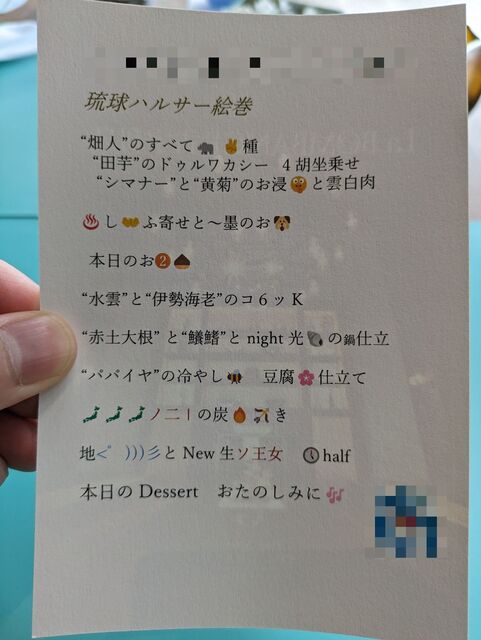 琉球ハルサー絵巻
“畑人”のすべて🐘 ✌種
“田芋”のドゥルワカシー 4胡坐乗せ
“シマナー”と“黄菊”のお浸😗と雲白肉
♨し👐ふ寄せと〜墨のお🐶
本日のお❷🌰
“水雲”と“伊勢海老”のコ6ッK
“赤土大根”と“鱶鰭”とnight光🐚の鍋仕立
“パパイヤ”の冷やし🐝 豆腐🌸仕立て
🗾🗾🗾ノ二Iの炭🔥🎋き
地<゜)))彡とNew生ソ王女 🕔half
本日のDessert おたのしみに🎶